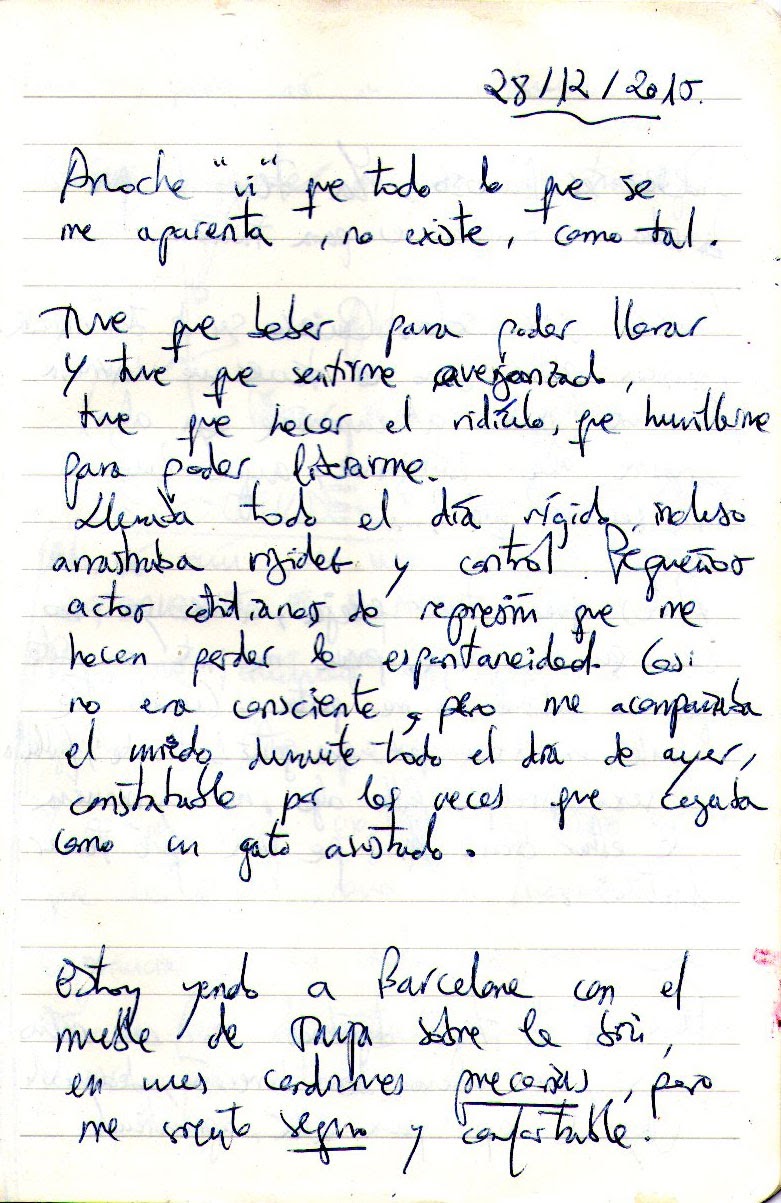 28/12/2015.
Anoche "vi" que todo lo que se
me aparenta, no existe, como tal.
Tuve que beber para poder llorar
y tuve que sentirme avergonzado,
tuve que hacer el ridículo, que humillarme
para poder liberarme.
Llevaba todo el día rígido, incluso
arrastraba rigidez y control. Pequeños
actos cotidianos de represión que me
hacen perder la espontaneidad. Casi
no era consciente, pero me acompañaba
el miedo durante todo el día de ayer,
constatable por las veces que
como un gato asustado.
Estoy yendo a Barcelona con el
mueble de sobre la
en unas condiciones precarias, pero
me siento seguro y confortable.